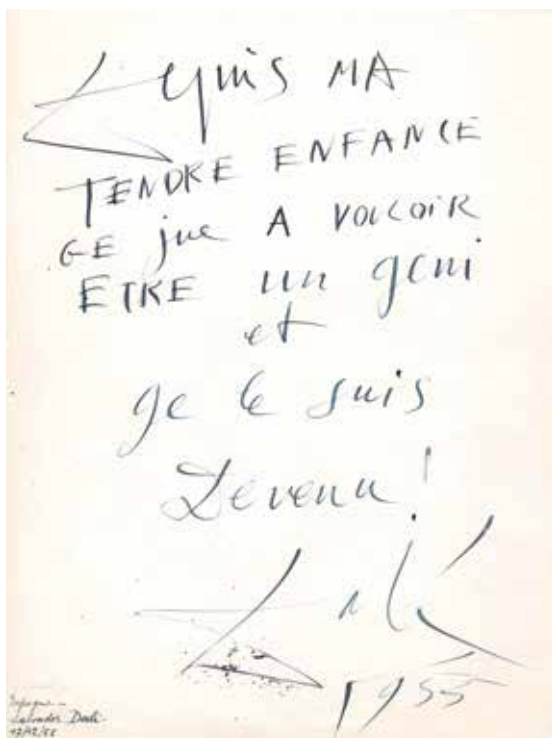 Depuis MA
TENDRE ENFANCE
GE jue A VOULOIR
ETRE un geni
et
je le suis
Devenu!
Dalí
1955
Espagne –
Salvador Dali
17/12/55